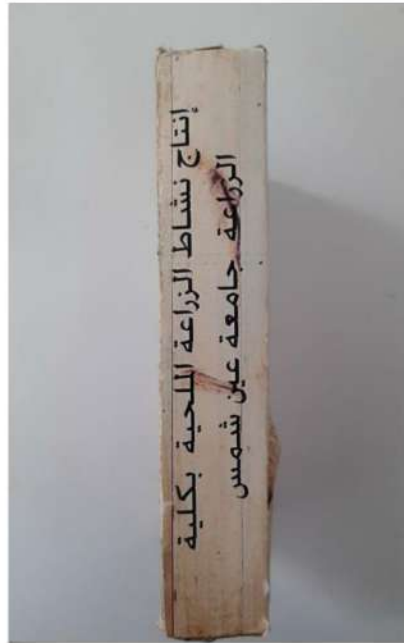 إنتاج نشاط الزراعة الملحية بكلية
الزراعة جامعة عين شمس